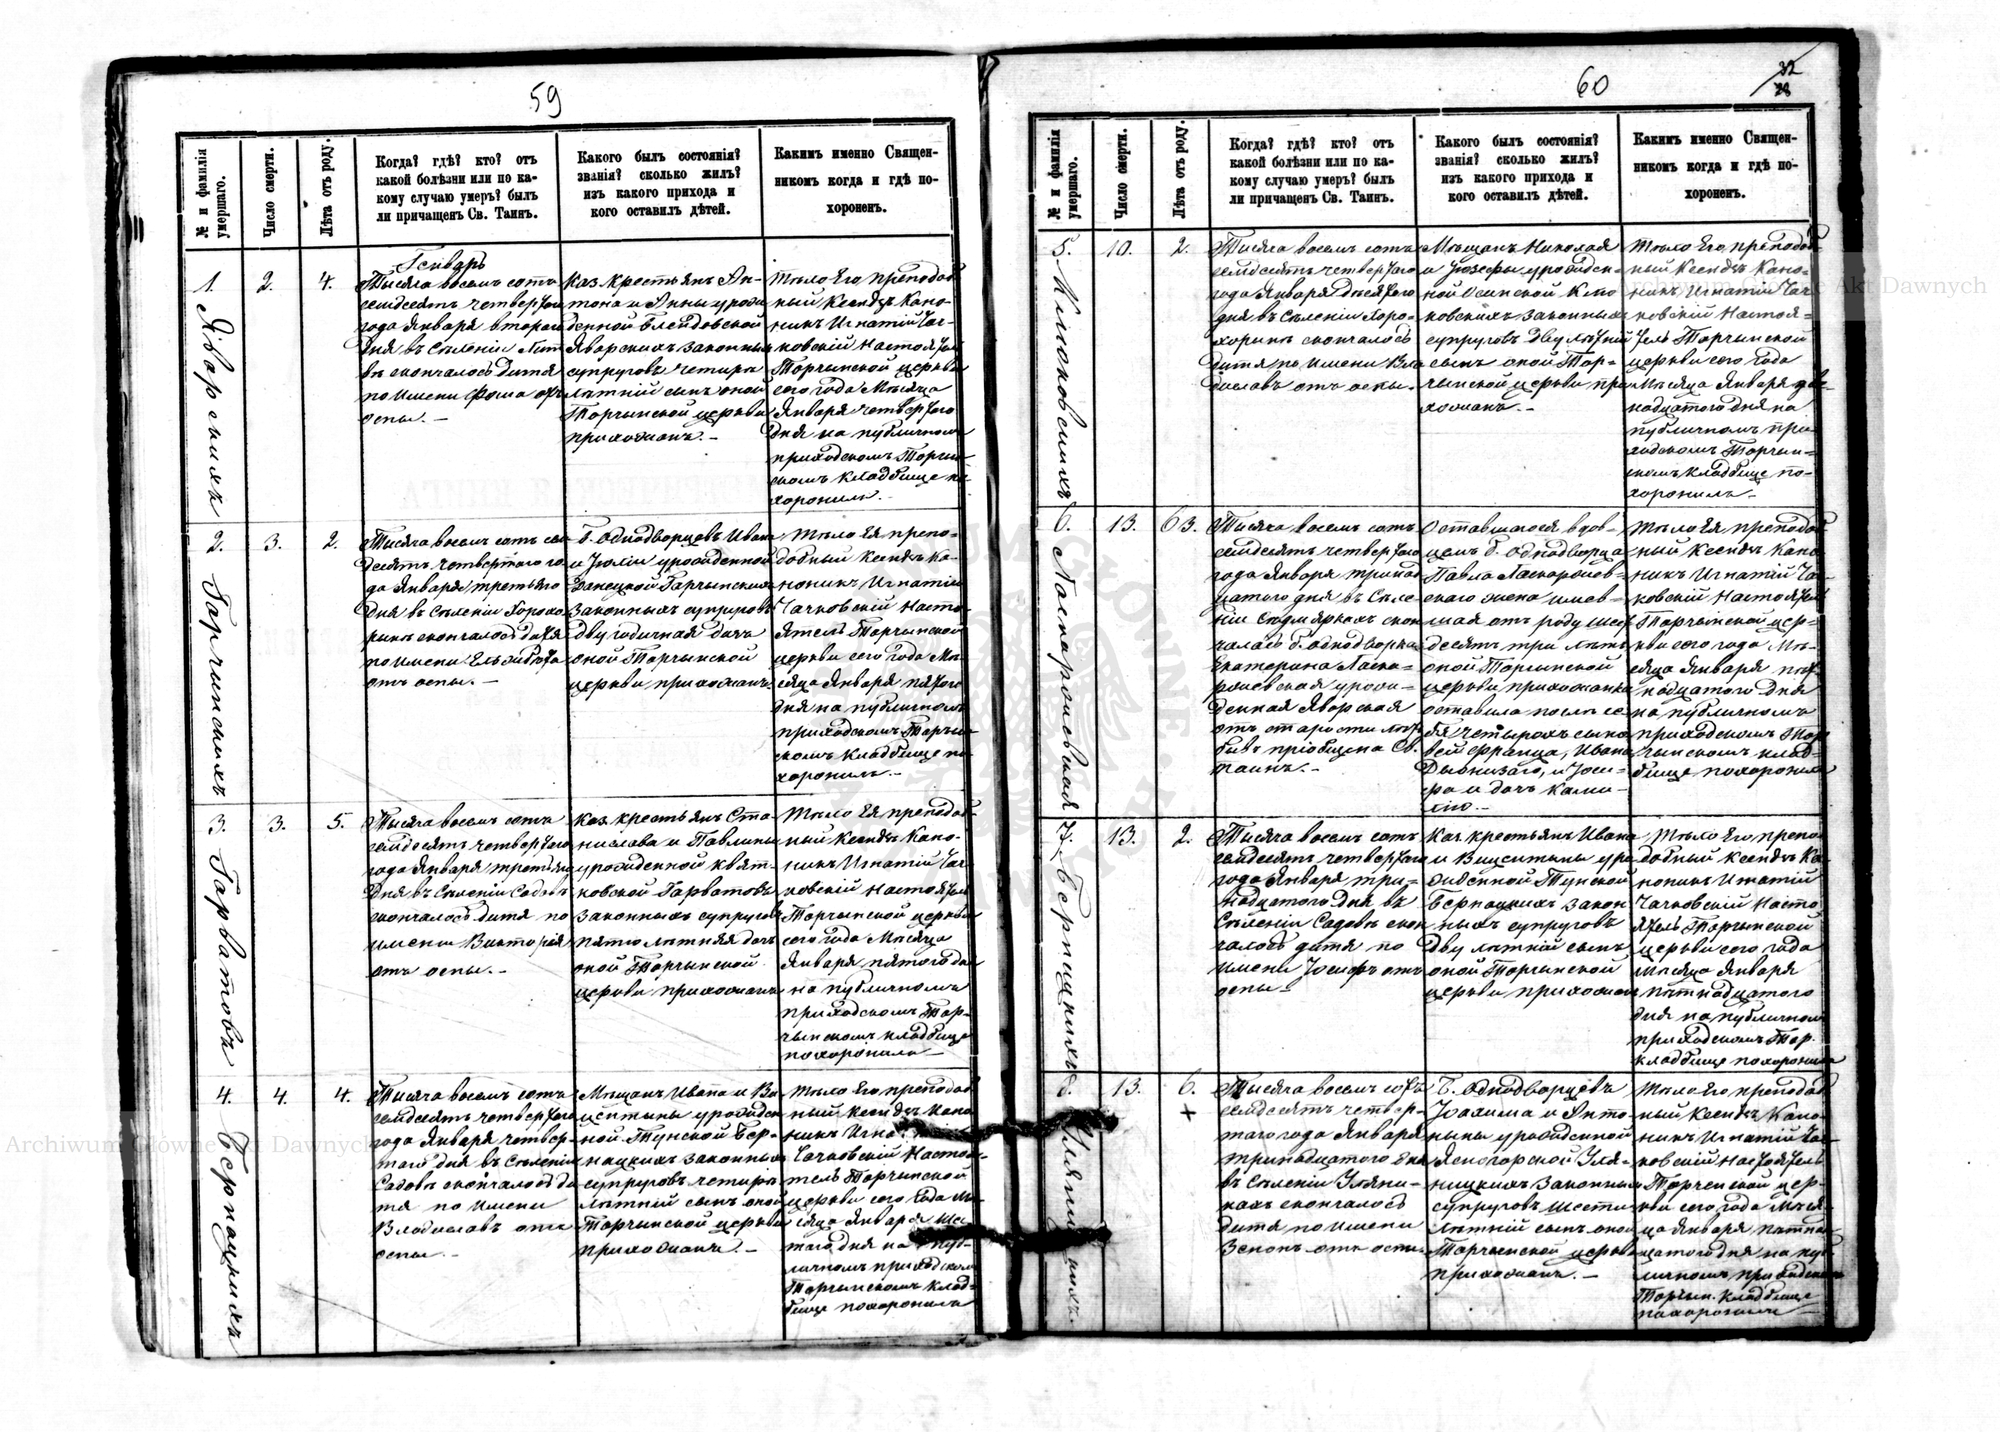 59
№ и фамилія умершаго.
Число смерти.
Лѣта отъ роду.
Когда? гдѣ? кто? отъ
какой болѣзни или по ка-
кому случаю умеръ? былъ
ли причащенъ Св. Таинъ.
Какого былъ состоянія?
званія? сколько жилъ?
изъ какого прихода и
кого оставилъ дѣтей.
Какимъ именно Священ-
никомъ когда и гдѣ по-
хороненъ.
1. Яворскихъ
2.
4.
Генварь
Тысяча восемь сотъ
семдесятъ четвертого
года Января второго
дня въ Селеніи
въ скончалось дитя
по имени Фома отъ
оспы. —
Каз. крестьянъ Ан-
тона и Анны урож-
денной
Яворскихъ законныхъ
супруговъ четырех
лѣтній сынъ оной
Торчынской церкви
прихожанъ. —
Тѣло Его преподоб-
ный Ксендзъ Кано-
никъ Игнатій Чач-
ковскій Настоятель
Торчынской церкви
сего года Мѣсяца
Января четвертого
дня на публичномъ
приходскомъ Торчын-
скомъ кладбище по-
хоронилъ. —
2. Гарчинскихъ
3.
2.
Тысяча восемь сотъ сем-
десятъ четвертого го-
да Января третьяго
дня въ Селеніи Хорохо-
рынъ скончалось дитя
по имени Ельжбета
отъ оспы. —
Б. Однодворцевъ Ивана
и Юліи урожденной
Гарчынскихъ
законныхъ супруговъ
двугодичная дочь
оной Торчынской
церкви прихожанъ.
Тѣло Ея препо-
добный Ксендзъ Ка-
ноникъ Игнатій
Чачковскій Насто-
ятель Торчынской
церкви сего года Мѣ-
сяца Января пятого
дня на публичномъ
приходскомъ Торчын-
скомъ кладбище по-
хоронилъ. —
3. Гарватовъ
3.
5.
Тысяча восемь сотъ
семдесятъ четвертого
года Января третьяго
дня въ Селеніи Садовъ
скончалось дитя по
имени Викторія
отъ оспы. —
Каз. крестьянъ Ста-
нислава и Павлины
урожденной Квят-
ковской Гарватовъ
законныхъ супруговъ
пятилѣтняя дочь
оной Торчынской
церкви прихожанъ
Тѣло Ея преподоб-
ный Ксендзъ Кано-
никъ Игнатій Чач-
ковскій Настоятель
Торчынской церкви
сего года Мѣсяца
Января пятого дня
на публичномъ
приходскомъ Тор-
чынскомъ кладбище
похоронилъ —
4. Бернацкихъ
4.
4.
Тысяча восемь сотъ
семдесятъ четвертого
года Января четвер-
таго дня въ Селеніи
Садовъ скончалось ди-
тя по имени
Владиславъ отъ
оспы. —
Мѣщанъ Ивана и Ви-
центыны урожден-
ной Тунской Бер-
нацкихъ законныхъ
супруговъ четырех
лѣтній сынъ оной
Торчынской церкви
прихожанъ. —
Тѣло Его преподоб-
ный Ксендзъ Кано-
никъ Игнатій
Чачковскій Настоя-
тель Торчынской
церкви сего года Мѣ-
сяца Января шес-
таго дня на пуб-
личномъ приходскомъ
Торчынскомъ клад-
бище похоронилъ
60
32
28
№ и фамилія умершаго.
Число смерти.
Лѣта отъ роду.
Когда? гдѣ? кто? отъ
какой болѣзни или по ка-
кому случаю умеръ? былъ
ли причащенъ Св. Таинъ.
Какого былъ состоянія?
званія? сколько жилъ?
изъ какого прихода и
кого оставилъ дѣтей.
Какимъ именно Священ-
никомъ когда и гдѣ по-
хороненъ.
5. Климковскихъ
10.
2.
Тысяча восемь сотъ
семдесятъ четвертого
года Января десятого
дня въ Селеніи Хоро-
хорынъ скончалось
дитя по имени Вла-
диславъ отъ оспы. —
Мѣщанъ Николая
и Юзефы урожден-
ной Осинской Клим-
ковскихъ законныхъ
супруговъ двулѣтній
сынъ оной Тор-
чынской церкви при-
хожанъ. —
Тѣло Его преподоб-
ный Ксендзъ Кано-
никъ Игнатій Чач-
ковскій Настоя-
тель Торчынской
церкви сего года
Мѣсяца Января две-
надцатого дня на
публичномъ при-
ходскомъ Торчын-
скомъ кладбище по-
хоронилъ —
6. Ласкароневская
13.
63.
Тысяча восемь сотъ
семдесятъ четвертого
года Января тринад-
цатого дня въ Селе-
ніи скон-
чалась б. однодворка
Екатерина Ласка-
роневская урож-
денная Яворская
отъ старости
бывъ пріобщена Св.
Таинъ. —
Оставшагося вдов-
цемъ б. однодворца
Павла Ласкаронев-
скаго жена имев-
шая отъ роду шест-
десятъ три лѣтъ
оной Торчынской
церкви прихожанка
оставила послѣ се-
бя четырохъ сыно-
вей Франца, Ивана
Дыонизаго, и Іоси-
фа и дочь Ками-
лію. —
Тѣло Ея преподоб-
ный Ксендзъ Кано-
никъ Игнатій Чач-
ковскій Настоятель
Торчынской цер-
кви сего года Мѣ-
сяца Января пят-
надцатого дня
на публичномъ
приходскомъ Тор-
чынскомъ клад-
бище похоронилъ
7. Бернацкихъ
13.
2.
Тысяча восемь сотъ
семдесятъ четвертого
года Января три-
надцатого дня въ
Селеніи Садовъ скон-
чалось дитя по
имени Іосифъ отъ
оспы —
Каз. крестьянъ Ивана
и Вицентыны уро-
жденной Тунской
Бернацкихъ закон-
ныхъ супруговъ
двулѣтній сынъ
оной Торчынской
церкви прихожанъ
Тѣло Его препо-
добный Ксендзъ Ка-
ноникъ Игнатій
Чачковскій Насто-
ятель Торчынской
церкви сего года
Мѣсяца Января
пятнадцатого
дня на публичномъ
приходскомъ Тор.
кладбище похоронилъ
8. Уляницкихъ
13.
6.
+
Тысяча восемь сотъ
семдесятъ четвер-
таго года Января
тринадцатого дня
въ Селеніи Уляни-
кахъ скончалось
дитя по имени
Зенонъ отъ оспы.
Б. Однодворцевъ
Іоахима и Анто-
нины урожденной
Ясногорской Уля-
ницкихъ законныхъ
супруговъ шести
лѣтній сынъ оной
Торчынской церкви
прихожанъ. —
Тѣло Его преподоб-
ный Ксендзъ Кано-
никъ Игнатій Чач-
ковскій Настоятель
Торченской цер-
кви сего года Мѣся-
ца Января пятнад-
цатого дня на пуб-
личномъ приходскомъ
Торчын. кладбище
похоронилъ
Archiwum Główne Akt Dawnych
Archiwum Główne Akt Dawnych